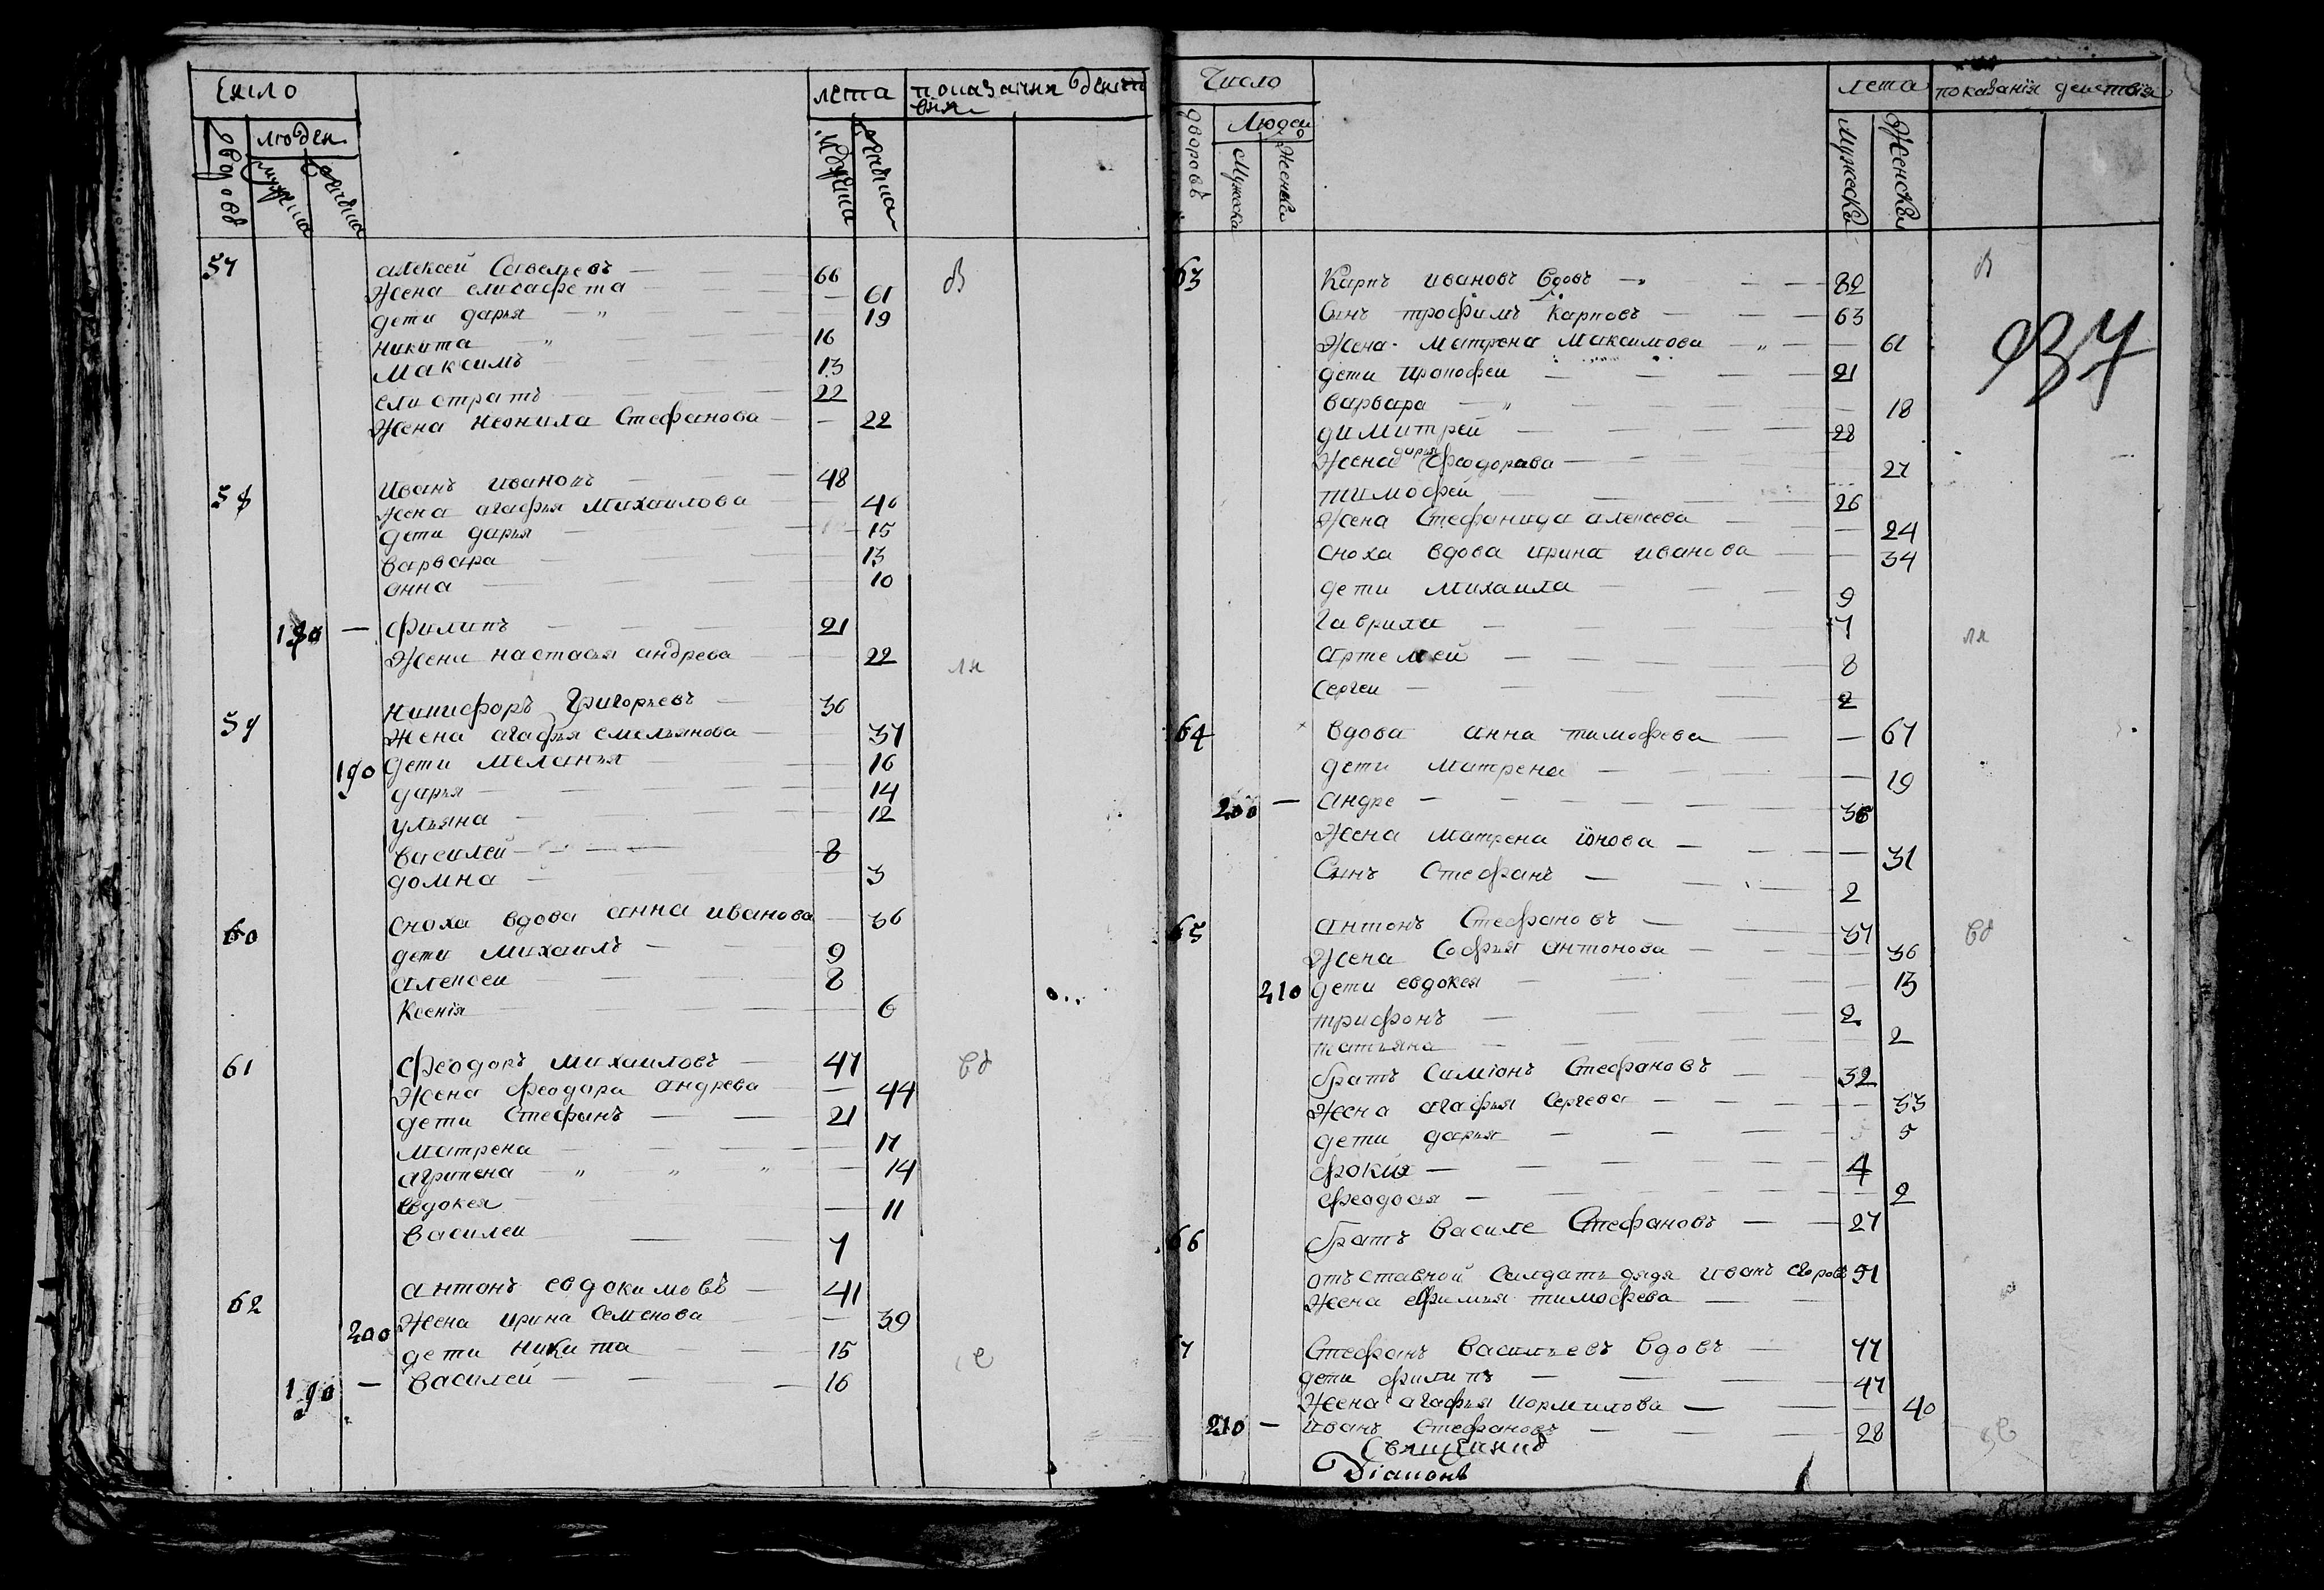 Число
лета показания действ
вия
людеи
57 алексеи Савельевъ — 66
Жена елисафета — 61
дети дарья — 19
никита — 16
Максимъ 13
елистратъ — 22
Жена неонила Стефанова — 22
58 Иванъ ивановъ — 48
Жена агафья Михаилова — 40
дети дарья — 15
варвара — 13
анна — 10
180 — филипъ — 21
Жена настасья андрева — 22
59 никифоръ Григорьевъ — 36
Жена агафья емельянова — 37
190 дети меланья — 16
дарья — 14
ульяна — 12
василей — 8
домна — 3
60 сноха вдова анна иванова — 36
дети михаилъ — 9
алексеи — 8
Ксенія — 6
61 Феодоръ михаиловъ — 47
Жена феодора андрева — 44
дети Стефанъ — 21
матрена — 17
агрипена — 14
евдокея — 11
василеи — 7
62 антонъ евдокимовъ — 41
200 Жена ирина семенова — 39
дети никита — 15
190 — василей — 16
Число
лета показанія действія
Людей
дворовъ Мужеска Женска Мужеска Женска
63 Карпъ ивановъ вдовъ — 82
Сынъ трофимъ Карповъ — 63
937
Жена матрена максимова — 61
дети прокофеи — 21
варвара — 18
димитреи — 28
Жена дарья феодорова — 27
тимофей — 26
Жена Стефанида алексева — 24
сноха вдова ирина иванова — 34
дети михаила — 9
гаврила — 7
артемей — 8
сергеи — 2
64 вдова анна тимофева — 67
дети матрена — 19
200 — андре — 36
Жена матрена іонова — 31
Сынъ Стефанъ — 2
65 антонъ Стефановъ — 37
Жена Софья антонова — 36
210 дети евдокея — 13
трифонъ — 2
татьяна — 2
братъ Симіонъ Стефановъ — 32
Жена агафья Сергева — 33
дети дарья — 5
фокия — 4
феодосья — 2
66 братъ василе Стефановъ — 27
отъставной салдатъ дядя иванъ 51
Жена ефимья тимофева —
7 Стефанъ Васильевъ вдовъ — 77
дети филипъ — 47
Жена агафья кормилова — 40
210 — иванъ Стефановъ — 28
Священникъ
Діаконъ